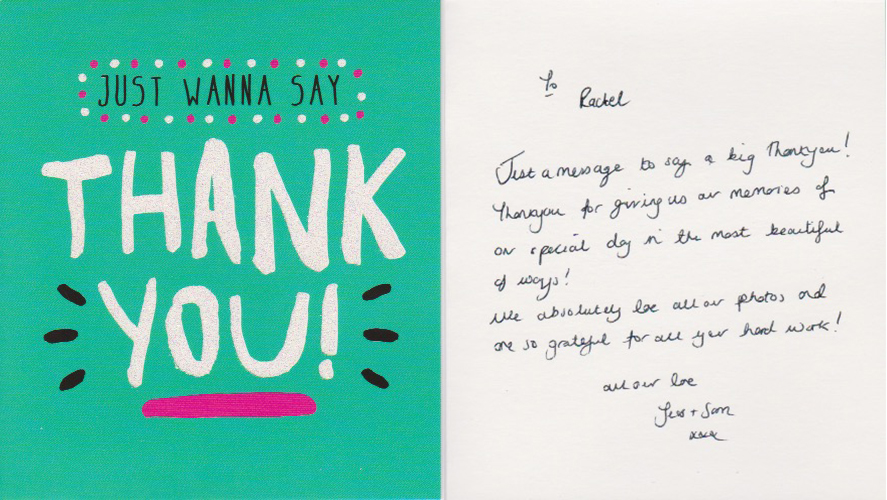 JUST WANNA SAY
THANK
YOU!
To
Rachel
Just a message to say a big Thankyou!
Thankyou for giving us our memories of
our special day in the most beautiful
of ways!
We absolutely love all our photos and
are so grateful for all your hard work!
all our love
Jess + Sam
xxxx